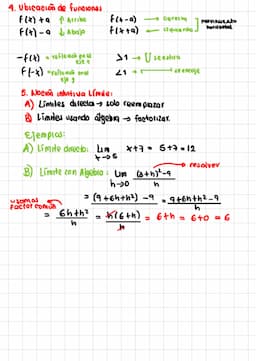 4. Ubicación de funciones
f(x)+a ↑ Arriba f(x-a) → Derecha
f(x)-a ↓ Abajo f(x+a) → Izquierda
-f(x) → reflexión en el eje x >1 → U
f(-x) → reflexión en el eje y <1 →
5. Noción intuitiva límite:
A) Límites directo → solo reemplazar
B) Límites usando álgebra → factorizar.
Ejemplos:
A) Límite directo: lim x→5 x+7 = 5+7 = 12
B) Límite con Algebra: lim h→0 (3+h)²-9 / h → resolver
= (9+6h+h²) -9 / h = 9+6h+h²-9 / h
usamos factor común = 6h+h² / h = h(6+h) / h = 6+h = 6+0 = 6